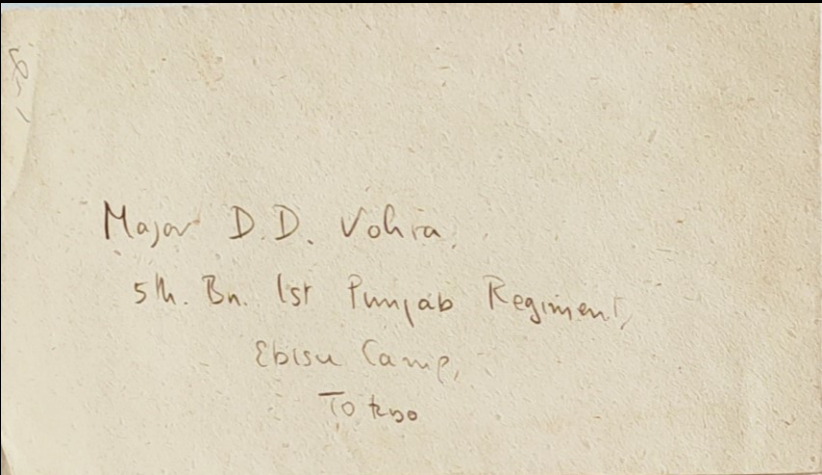 Major D.D. Vohra,
5th. Bn. 1st Punjab Regiment,
Ebisu Camp,
Tokyo